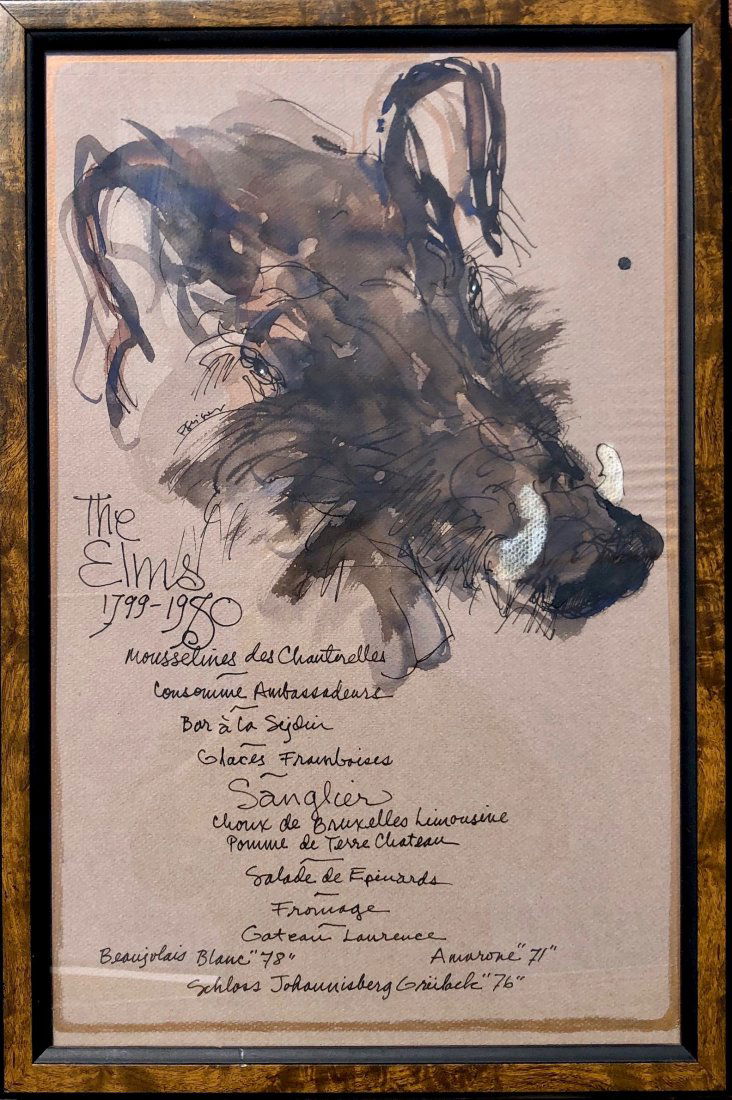 The
Elms
1799-1980
Mousselines des Chanterelles
Consomme Ambassadeurs
Bar à la
Glacés Framboises
Sanglier
Choux de Bruxelles Limousine
Pomme de Terre Chateau
Salade de Epinards
Fromage
Gateau Laurence
Beaujolais Blanc "78" Amarone "71"
Schloss Johannisberg "76"